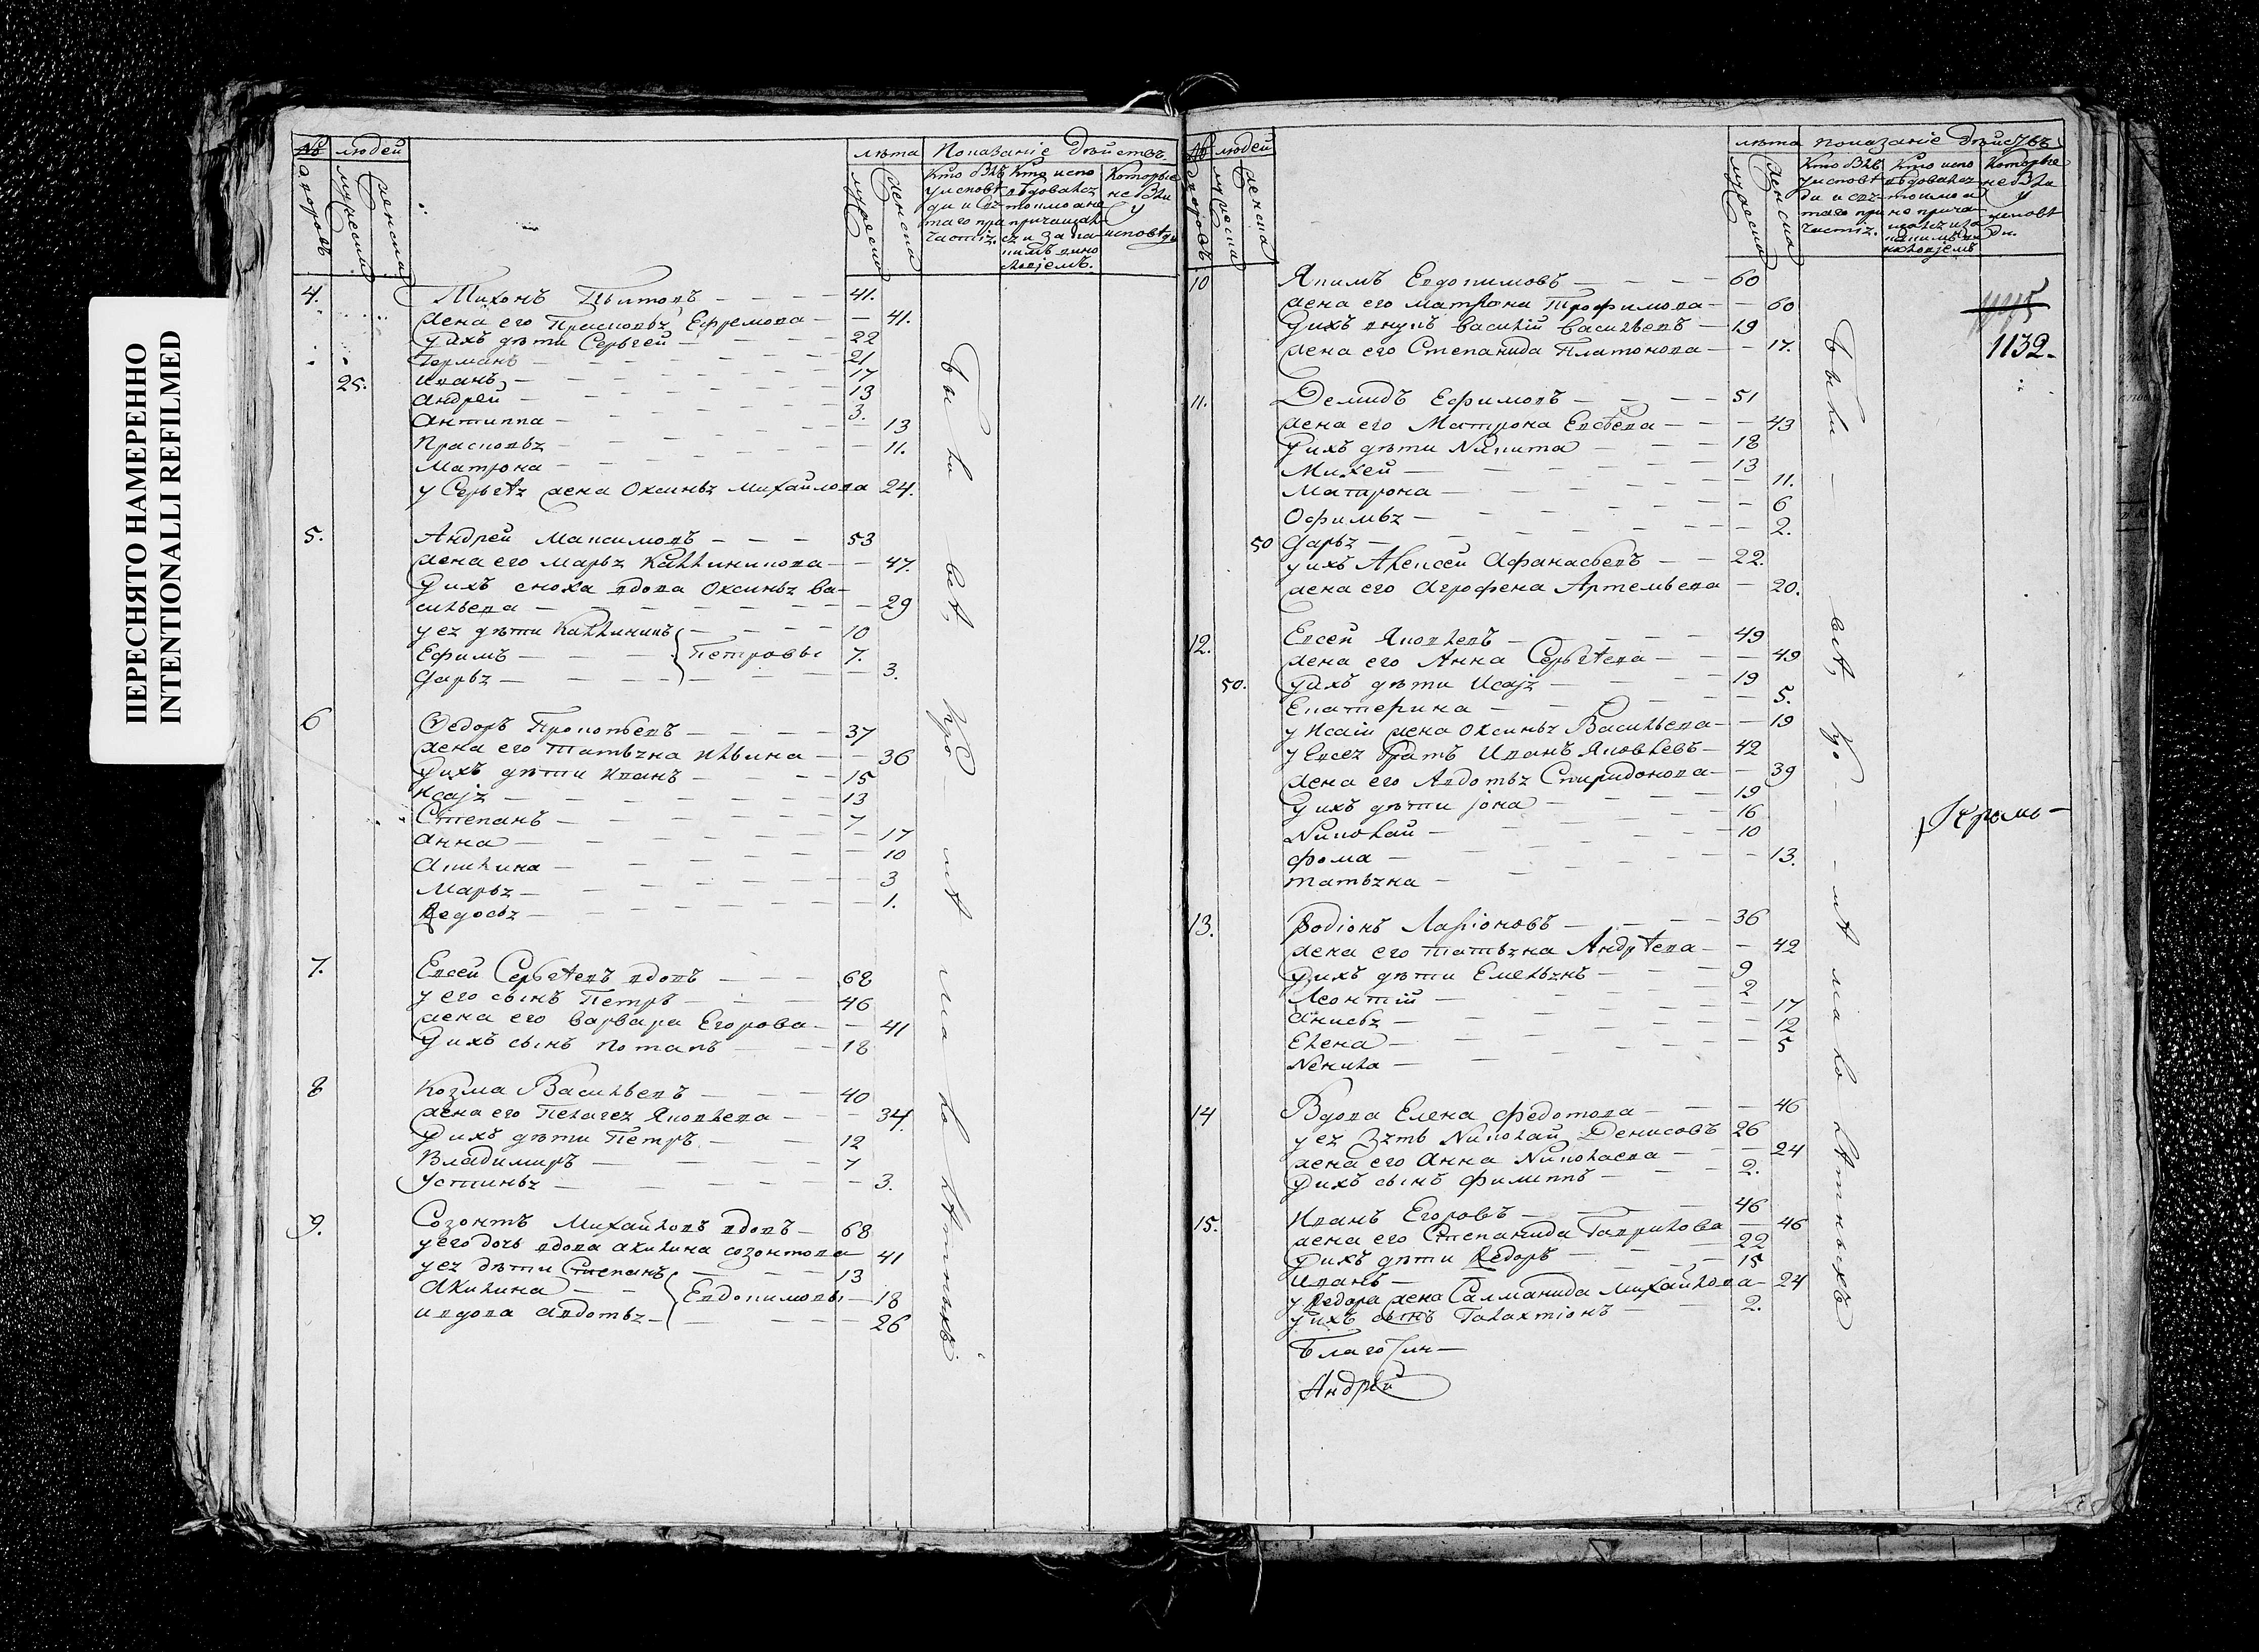 ПЕРЕСНЯТО НАМЕРЕННО
INTENTIONALLI REFILMED
№ людей лѣта Показаніе дѣйствъ
дворовъ мужескъ женска мужеска женска
Кто былъ у исповѣди и святаго причастія.
Кто испо вѣдовался токмо а не причащался и за какимъ вино
Которые не были у исповѣди
4. Тихонъ Титовъ — 41.
жена его Прасковья Ефремова — 41.
у ихъ дѣти Сергей — 22
Германъ — 21
25. Иванъ — 17
Андрей — 13
Антиппа — 3.
Прасковья — 13
Матрона — 11.
у Сергѣя жена Оксинья Михайлова 24.
5. Андрей Максимовъ — 53
жена его Марья Каллиникова — 47.
у ихъ сноха вдова Оксинья Ва-
сильева — 29
у ея дѣти Каллиникъ — 10
Ефимъ — Петровы 7.
Дарья — 3.
6 Ѳедоръ Прокопьевъ — 37
жена его Татьяна Ильина — 36
у ихъ дѣти Иванъ — 15
Исаія — 13
Степанъ — 7
Анна — 17
Акилина — 10
Марья — 3
Ѳедосья — 1.
7. Евсей Сергѣевъ вдовъ — 68
у его сынъ Петръ — 46
жена его Варвара Егорова — 41
у ихъ сынъ Потапъ — 18
8 Козма Васильевъ — 40
жена его Пелагея Яковлева — 34.
у ихъ дѣти Петръ — 12
Владимиръ — 7
Устинья — 3.
9. Созонтъ Михайловъ вдовъ — 68
у его дочь вдова Акилина Созонтова 41
у ея дѣти Степанъ — 13
Акилина — Евдокимовы — 18
и вдова Авдотья — 26
Были всѣ кромѣ малолѣтныхъ
№ людей лѣта Показаніе дѣйствъ
дворовъ мужеска женска мужеска женска
Кто былъ у исповѣди и свя таго при частія.
Кто испо вѣдовался токмо и не прича
Которые не были у исповѣ ди.
10 Якимъ Евдокимовъ — 60
жена его Матрона Трофимова — 60
у ихъ внукъ Василій Васильевъ — 19
жена его Степанида Платонова — 17.
1132.
11. Демидъ Ефимовъ — 51
жена его Матрона Евсѣева — 43
у ихъ дѣти Никита — 18
Михей — 13
Матарона — 11.
Офимья — 6
50 Дарья — 2.
у ихъ Алексей Афанасьевъ — 22.
жена его Агрофена Артемьева — 20.
12. Евсей Яковлевъ — 49
жена его Анна Сергѣева — 49
50. у ихъ дѣти Исаія — 19
Екатерина — 5.
у Исаіи жена Оксинья Васильева — 19
у Евсея братъ Иванъ Яковлевъ — 42
жена его Авдотья Спиридонова — 39
у ихъ дѣти Іона — 19
Николай — 16
Фома — 10
Татьяна — 13.
Кромѣ —
13. Родіонъ Ларіоновъ — 36
жена его Татьяна Андрѣева — 42
у ихъ дѣти Емельянъ — 9
Леонтій — 2
Анисья — 17
Елена — 12
Ненила — 5
14 Вдова Елена Федотова — 46
у ея зять Николай Денисовъ 26
жена его Анна Николаева — 24
у ихъ сынъ Филиппъ — 2.
15. Иванъ Егоровъ — 46
жена его Степанида Гаврилова — 46
у ихъ дѣти Ѳедоръ — 22
Иванъ — 15
у Ѳедора жена Салманида Михайлова — 24
у ихъ сынъ Галахтіонъ — 2.
Были — всѣ кро — мѣ малолѣтныхъ
Благочин —
Андрей